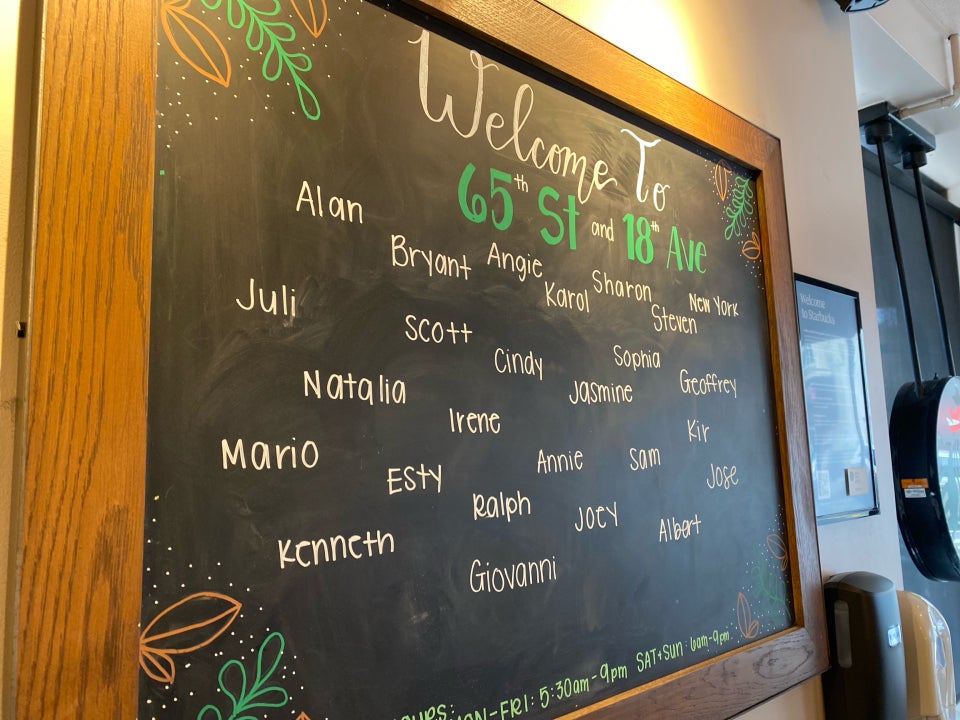 Welcome To
65th St and 18th Ave
Alan
Bryant
Angie
Karol
Sharon
Steven
New York
Juli
Scott
Cindy
Sophia
Natalia
Jasmine
Geoffrey
Irene
Kir
Mario
Esty
Annie
Sam
Jose
Ralph
Joey
Albert
Kenneth
Giovanni
MON-FRI: 5:30am-9pm SAT+SUN: 6am-9pm
Welcome
to Starbucks